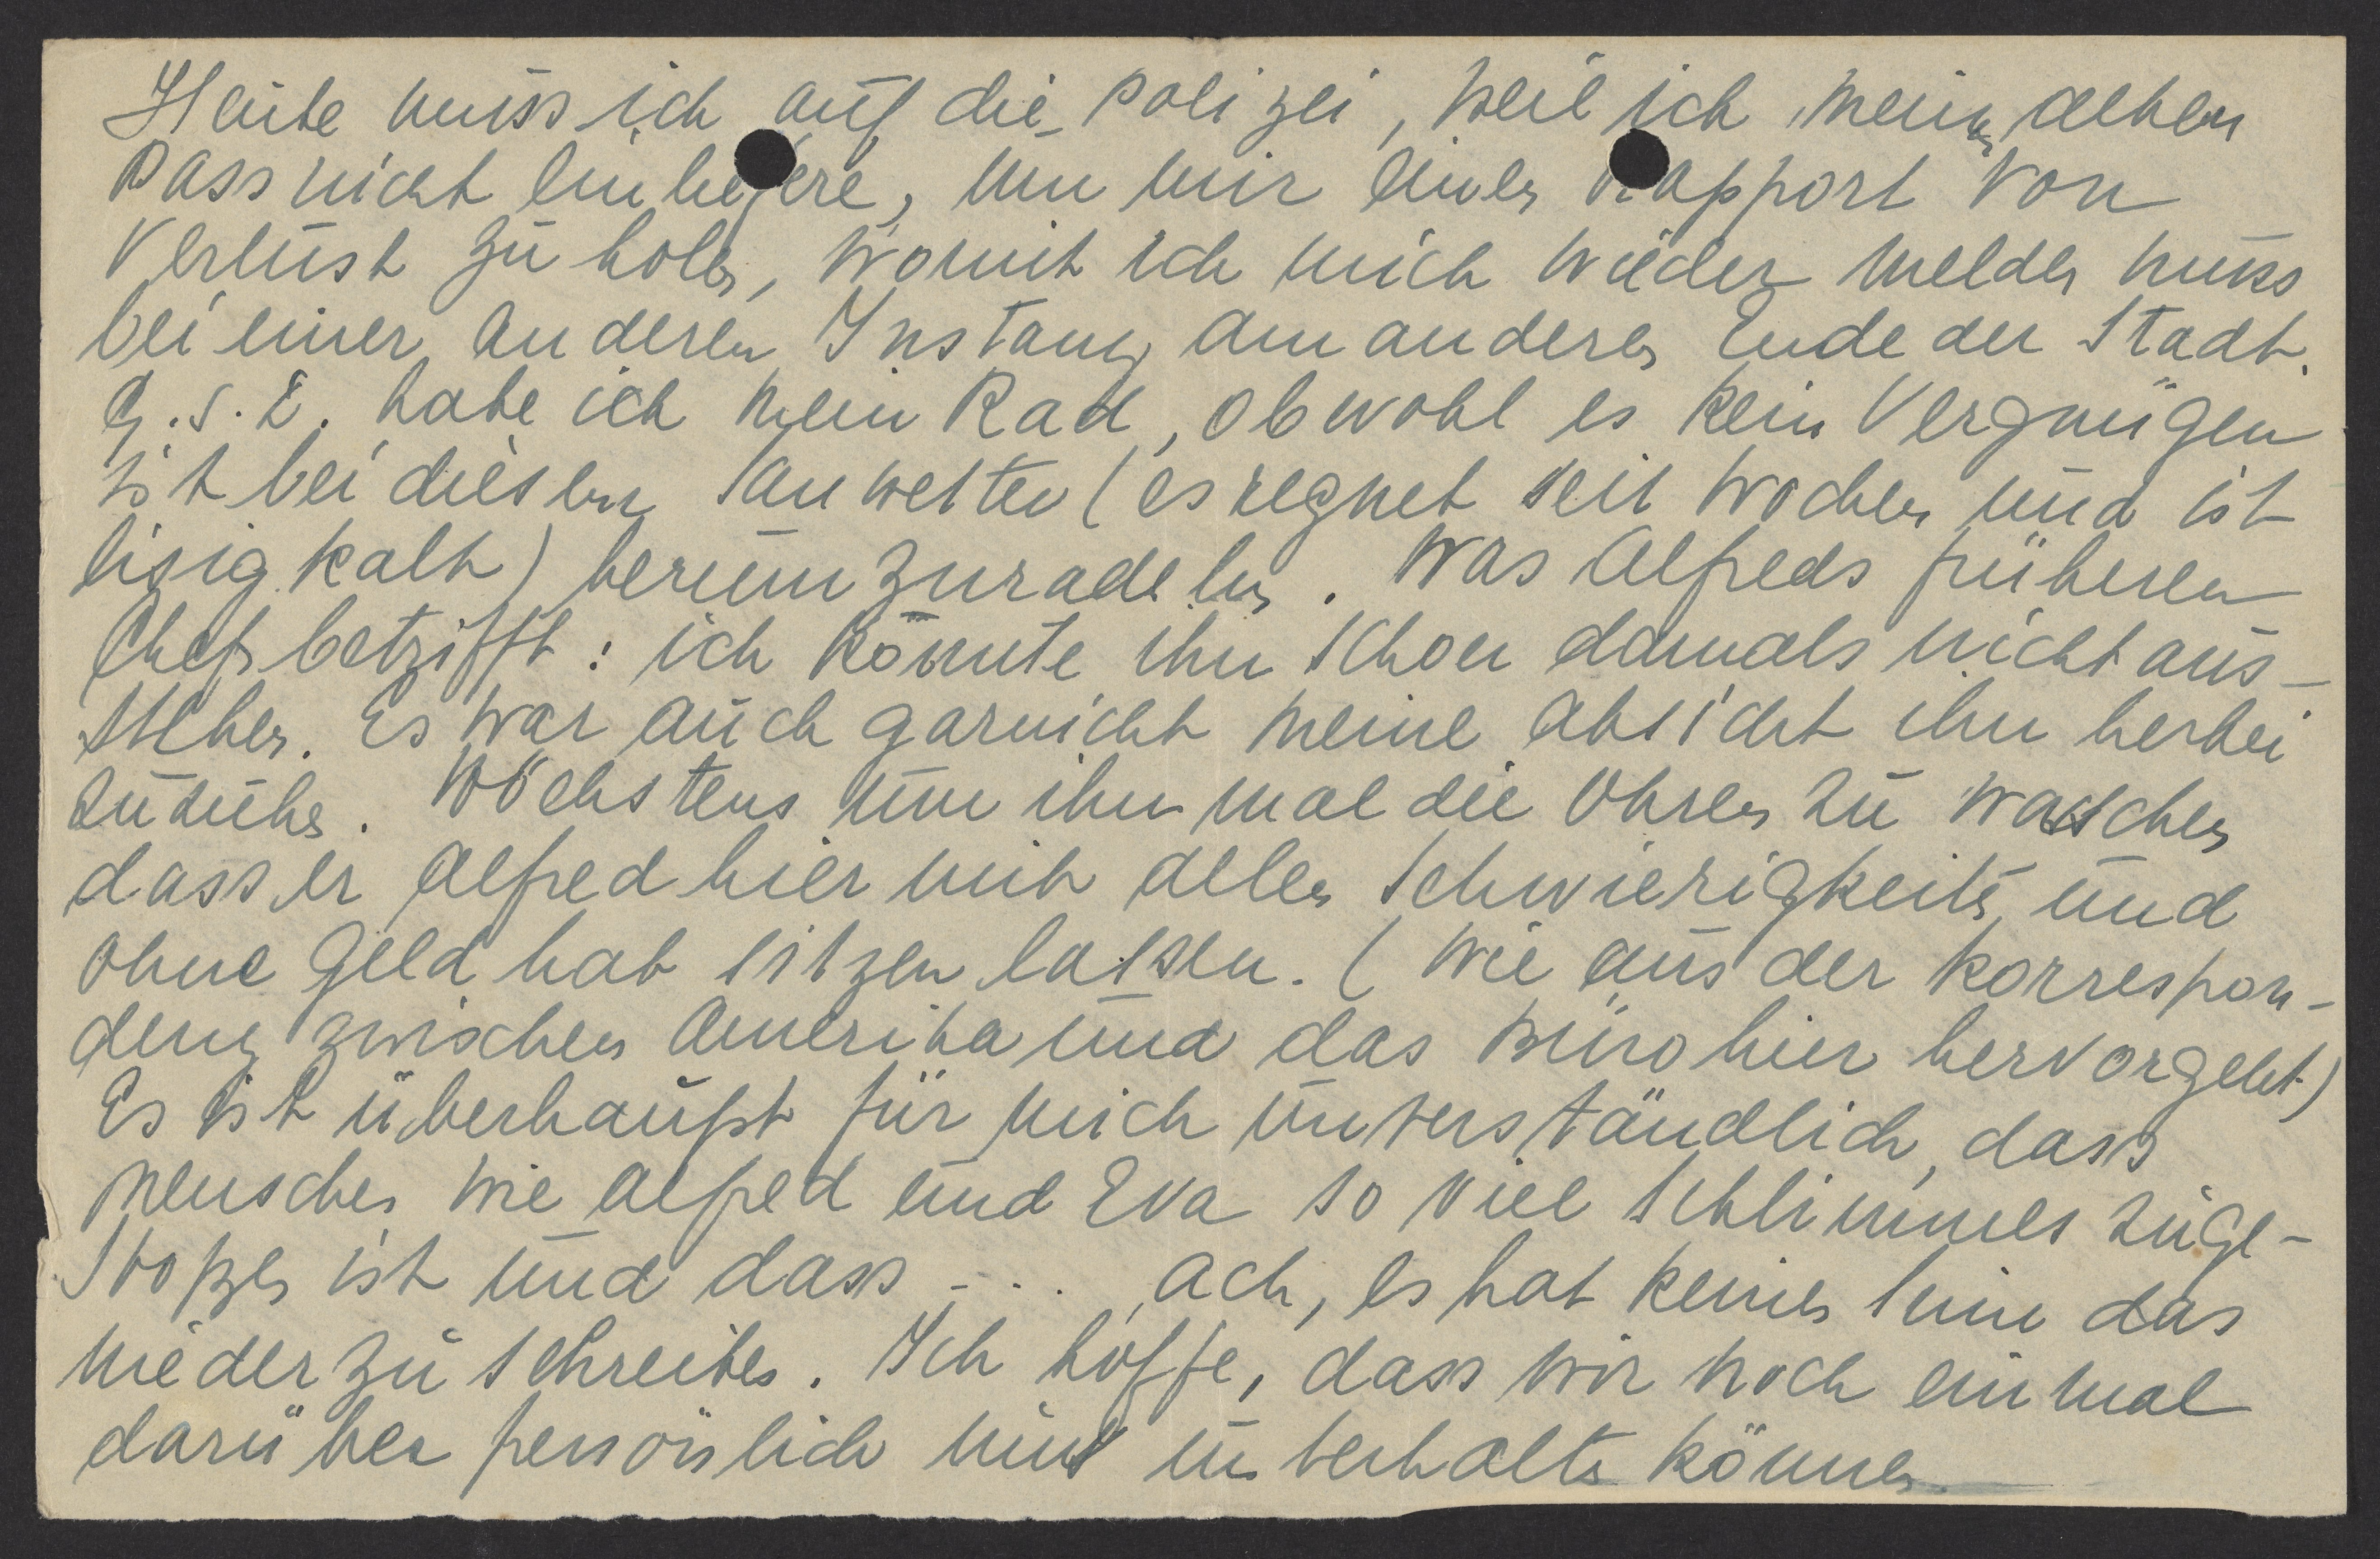 Heute muss ich auf die Polizei, weil ich meinen alten
Pass nicht einliefere, um mir einen Rapport von
Verlust zu holen, womit ich mich wieder melden muss
bei einer anderen Instanz am anderen Ende der Stadt.
G.s.D. habe ich mein Rad, obwohl es kein Vergnügen
ist bei diesem Sauwetter (es regnet seit Wochen und ist
eisig kalt) herumzuradeln. Was Alfreds früheren
Chef betrifft: ich konnte ihn schon damals nicht aus-
stehen. Es war auch garnicht meine Absicht ihn herbei
zuziehen. Höchstens um ihn mal die Ohren zu waschen
dass er Alfred hier mit allen Schwierigkeiten und
ohne Geld hat sitzen lassen. (Wie aus der Korrespon-
denz zwischen Amerika und das Büro hier hervorgeht)
Es ist überhaupt für mich unverständlich, dass
Menschen wie Alfred und Eva so viel Schlimmes zuge-
stoßen ist und dass ... ach, es hat keinen Sinn das
niederzuschreiben. Ich hoffe, dass wir noch einmal
darüber persönlich uns unterhalten können.